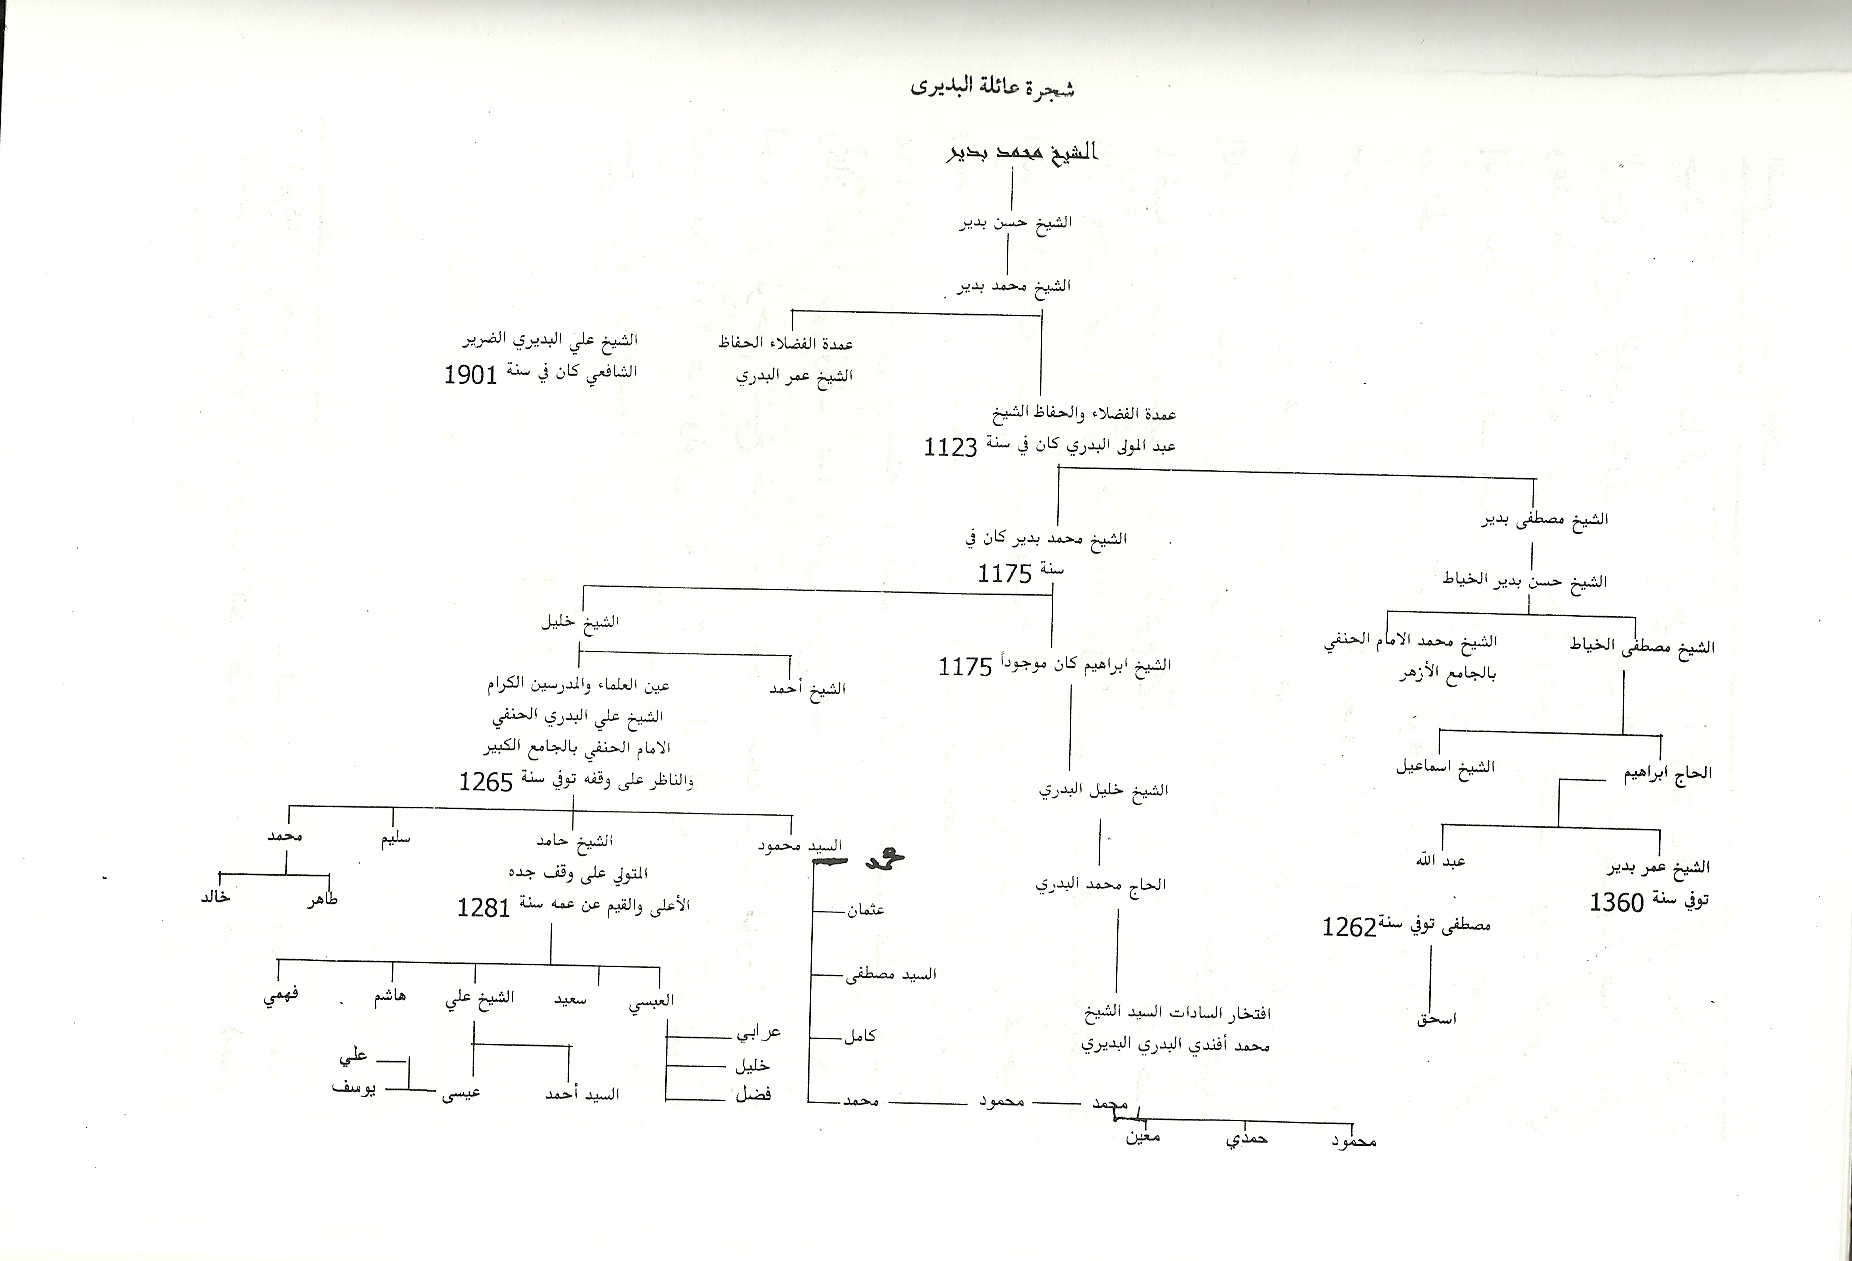 شجرة عائلة البديرى
الشيخ محمد بدير
الشيخ حسن بدير
الشيخ محمد بدير
عمدة الفضلاء الحفاظ
الشيخ عمر البدري
الشيخ علي البديري الضرير
الشافعي كان في سنة 1901
عمدة الفضلاء والحفاظ الشيخ
عبد المولى البدري كان في سنة 1123
الشيخ مصطفى بدير
الشيخ محمد بدير كان في
سنة 1175
الشيخ حسن بدير الخياط
الشيخ خليل
الشيخ مصطفى الخياط
الشيخ محمد الامام الحنفي
بالجامع الأزهر
الشيخ ابراهيم كان موجوداً 1175
الشيخ أحمد
عين العلماء والمدرسين الكرام
الشيخ علي البدري الحنفي
الامام الحنفي بالجامع الكبير
والناظر على وقفه توفي سنة 1265
الحاج ابراهيم
الشيخ اسماعيل
الشيخ خليل البدري
السيد محمود
محمد
الشيخ حامد
المتولي على وقف جده
الأعلى والقيم عن عمه سنة 1281
سليم
محمد
طاهر
خالد
الشيخ عمر بدير
توفي سنة 1360
عبد الله
مصطفى توفي سنة 1262
اسحق
الحاج محمد البدري
افتخار السادات السيد الشيخ
محمد أفندي البدري البديري
عثمان
السيد مصطفى
كامل
محمد
محمود
محمد
محمود
حمدي
معين
العبسي
سعيد
الشيخ علي
هاشم
فهمي
عرابي
خليل
فضل
السيد أحمد
عيسى
علي
يوسف